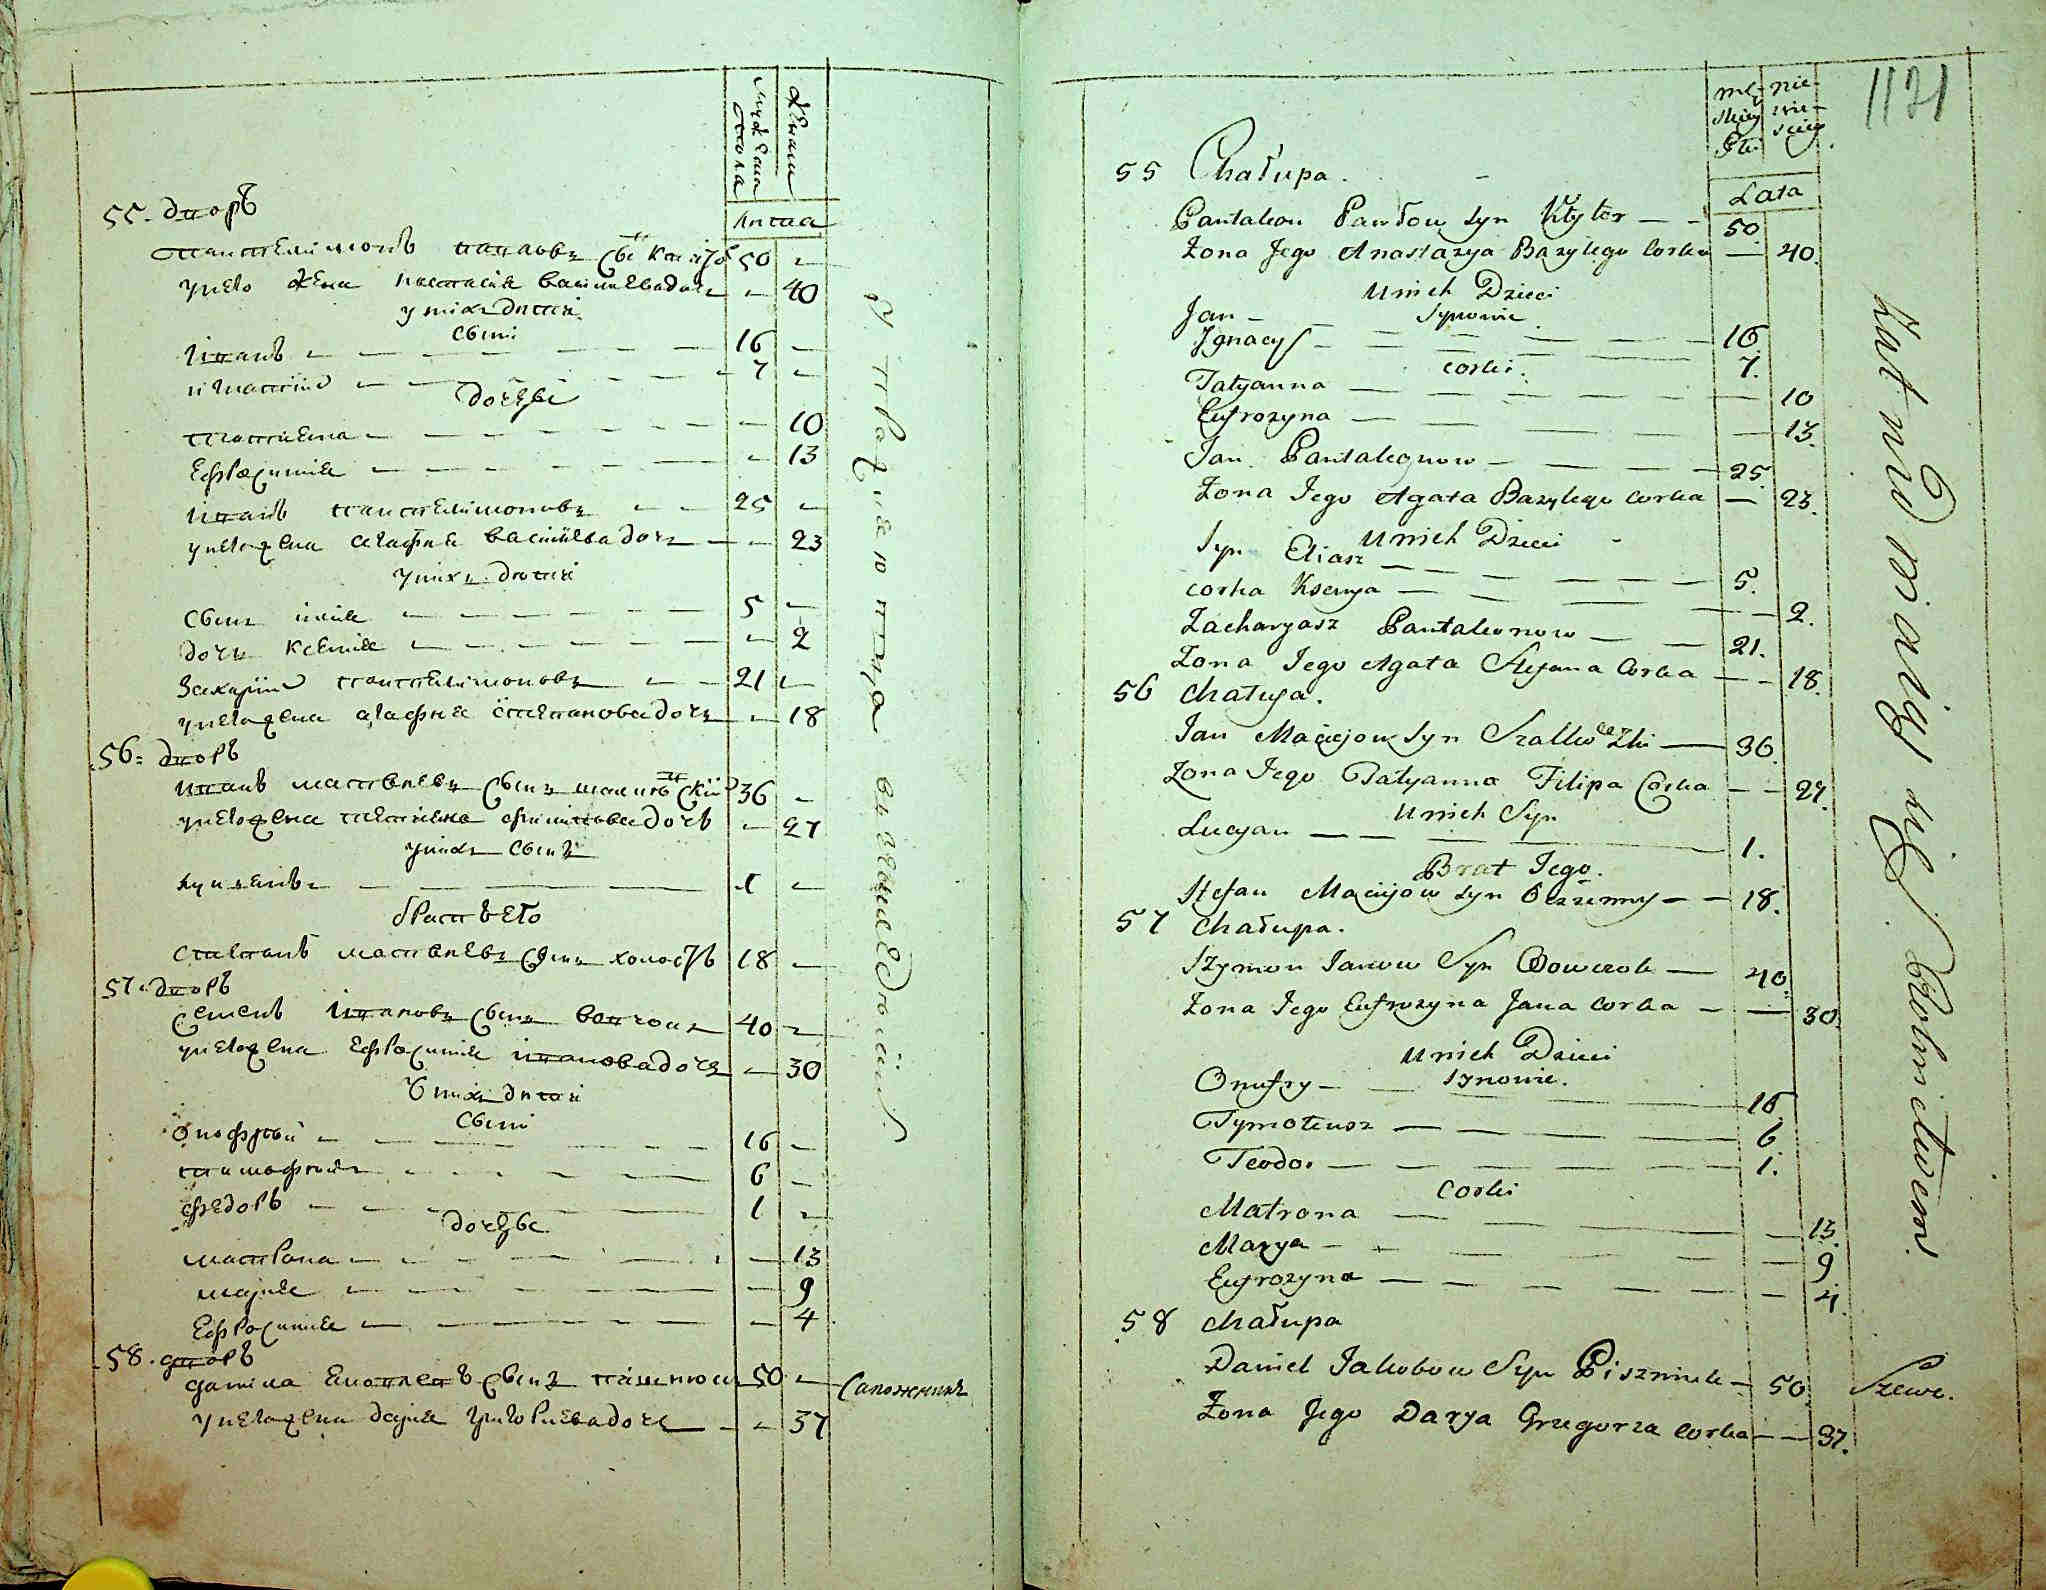 мужеска
пола
женска
Лѣта
55. дворъ
Пантелимонъ Павловъ Сынъ
50
унего жена Настасия Васильева дочь
40
у них дети
Сыни
Иванъ
16
Игнатий
7
дочери
Татиена
10
Ефросиния
13
Иванъ Пантелимоновъ
25
унего жена агафия васильева дочь
23
у них дети
Сынъ илия
5
дочь ксения
2
Захарий Пантелимоновъ
21
унего жена агафия степанова дочь
18
56: дворъ
Иванъ Матвеевъ Сынъ
36
унего жена татиена филипова дочь
27
у них Сынъ
Лукьянъ
1
братъ его
Степанъ Матвеевъ Сынъ холостъ
18
57. дворъ
Семенъ Ивановъ Сынъ
40
унего жена Ефросиния иванова дочь
30
У них дети
Сыни
Онофрей
16
тимофей
6
федоръ
1
дочери
матрона
13
мария
9
Ефросиния
4
58. дворъ
данила Сынъ
50
Сапожникъ
унего жена дария григориева дочь
37
у владению въ
1121
mę-
skiey
Płci
nie-
wie-
sciey
Lata
55 Chałupa.
Pantaleon Pawłow Syn Kłyter
50
Żona Jego Anastazya Bazylego Corka
40.
Unich Dzieci
Synowie
Jan
16
Ignacy
7.
corki.
Tatyanna
10
Eufrozyna
13.
Jan Pantaleonow
25.
Żona Jego Agata Bazylego Corka
23.
Unich Dzieci
Syn Eliasz
5.
corka Ksenya
2.
Zacharyasz Pantaleonow
21.
Żona Jego Agata Stefana Corka
18.
56 Chałupa.
Jan Maciejow Syn
36.
Żona Jego Tatyanna Filipa Corka
27.
Unich Syn
Lucyan
1.
Brat Jego.
Stefan Maciejow Syn Bezzenny
18.
57 Chałupa.
Szymon Janow Syn Wowczok
40.
Żona Jego Eufrozyna Jana Corka
30.
Unich Dzieci
Synowie.
Onufry
16
Tymoteusz
6.
Teodor
1.
Corki
Matrona
13.
Marya
9
Eufrozyna
4.
58 Chałupa
Daniel Jakobow Syn Piszniuk
50.
Szewc.
Żona Jego Darya Grzegorza Corka
37.